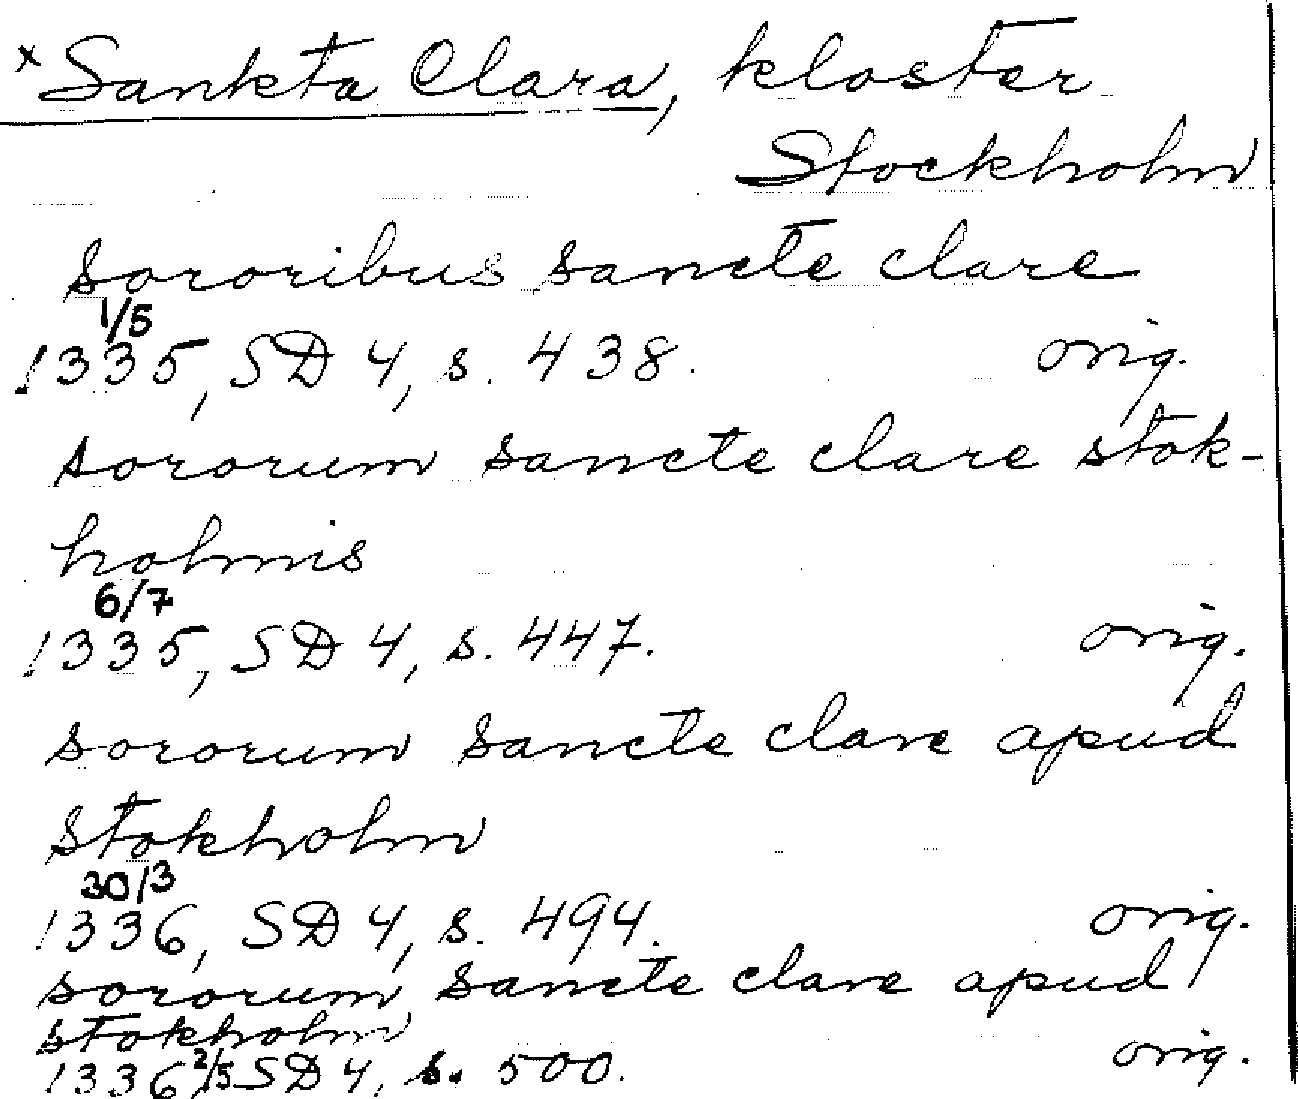 x Sankta Clara, kloster
Stockholm
sororibus sancte clare
1/5
1335, SD 4, s. 438. orig.
sororum sancte clare stok-
holmis
6/7
1335, SD 4, s. 447. orig.
sororum sancte clare apud
stokholm
30/3
1336, SD 4, s. 494. orig.
sororum sancte clare apud
stokholm
1336 2/5 SD 4, s. 500. orig.